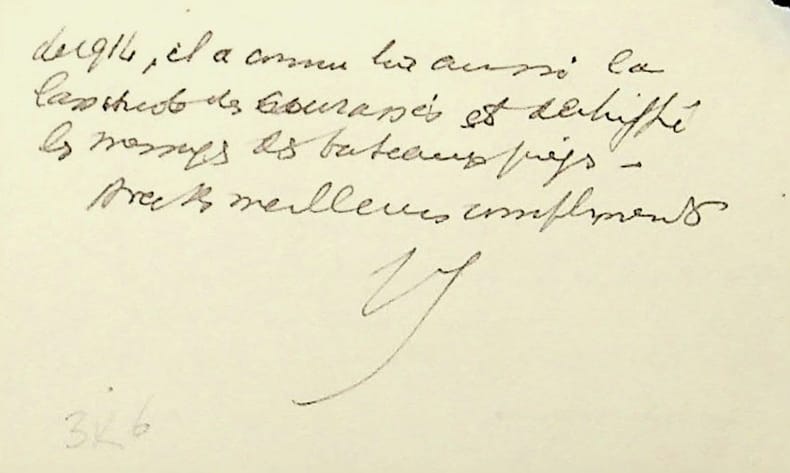 de 1914, il a connu lui aussi la
lassitude des cuirassés et déchiffré
les messages des bateaux pièges –
Avec les meilleurs compliments
3K6